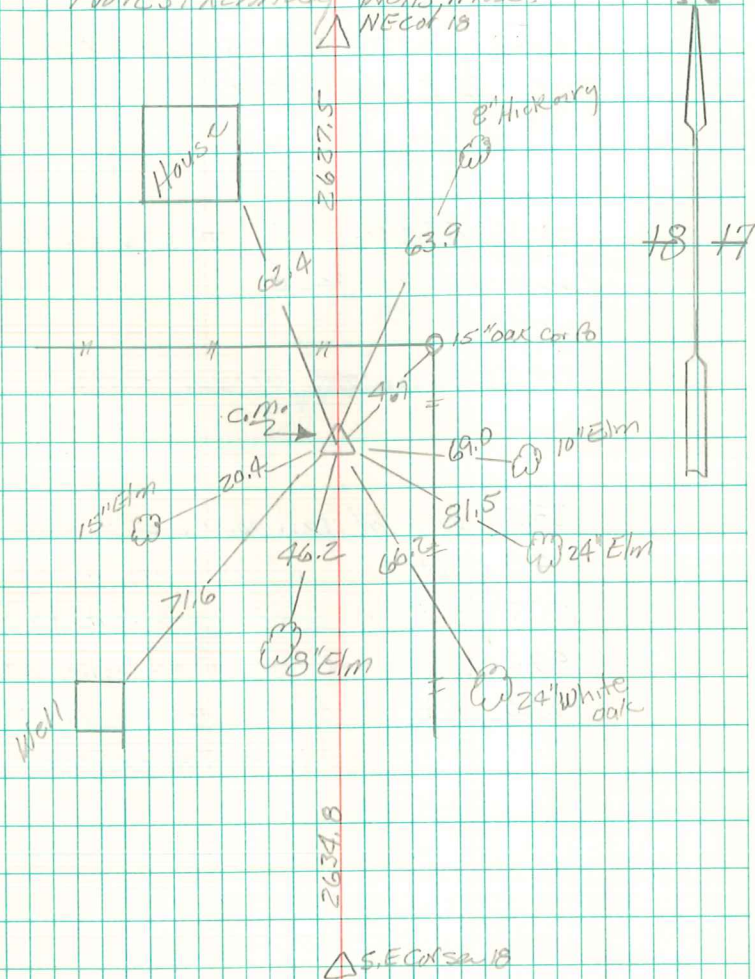 NE Cor 18
2637.5
8" Hickory
House
63.9
62.4
18 17
15" oak Cor Po
4.7
C.M.
69.0
10" Elm
20.4
81.5
15" Elm
46.2
24" Elm
71.6
8" Elm
24" White
oak
Well
2634.8
S.E Cor sec 18